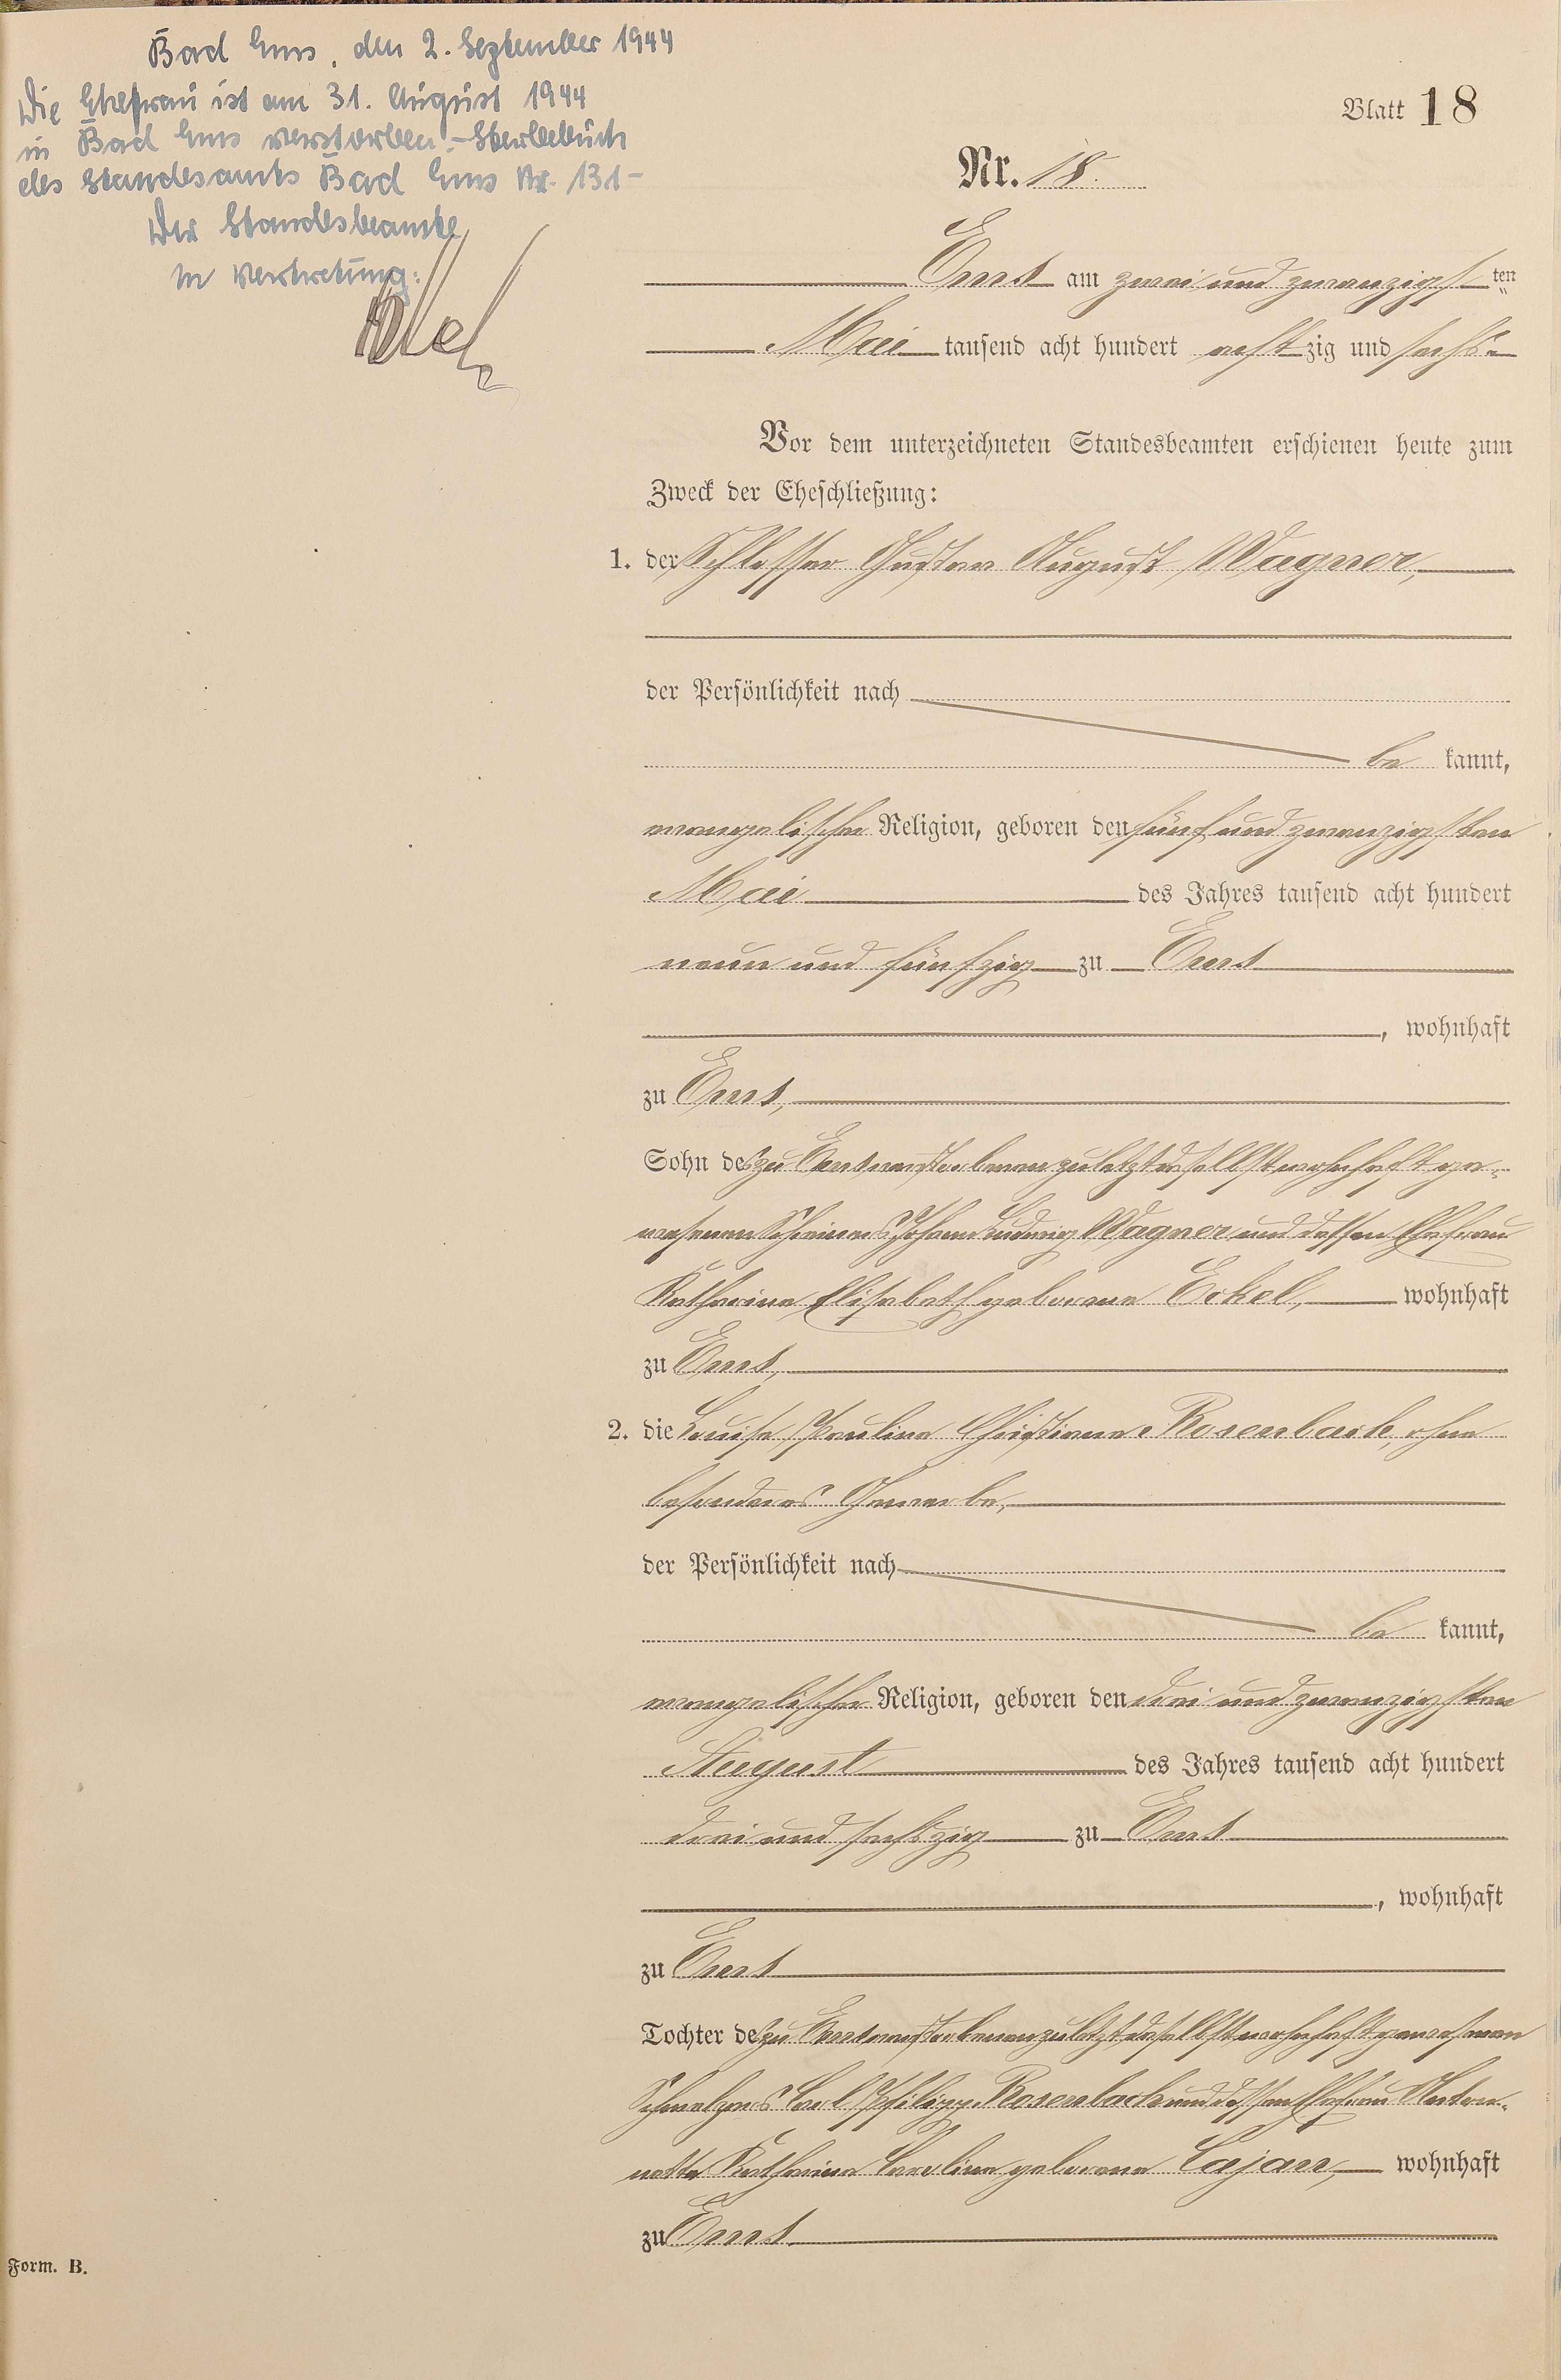 Bad Ems, den 2. September 1944
Die Ehefrau ist am 31. August 1944
in Bad Ems verstorben - Sterbebuch
des Standesamts Bad Ems Nr. 131 -
Der Standesbeamte
In Vertretung:
Blatt 18
Nr. 18.
Ems am zwei und zwanzigsten
Mai tausend acht hundert achtzig und sechs.
Vor dem unterzeichneten Standesbeamten erschienen heute zum
Zweck der Eheschließung:
1. der Schlosser Gustav August Wagner,
der Persönlichkeit nach
be kannt,
evangelischer Religion, geboren den fünf und zwanzigsten
Mai des Jahres tausend acht hundert
neun und fünfzig zu Ems
, wohnhaft
zu Ems,
Sohn des zu Ems verstorbenen zuletzt daselbst wohnhaft ge-
wesenen Schreiners Johann Ludwig Wagner und dessen Ehefrau
Katharina Elisabeth geborene Eckel, wohnhaft
zu Ems,
2. die Louise Pauline Christiane Rosenbach, ohne
besonderes Gewerbe,
der Persönlichkeit nach
be kannt,
evangelischer Religion, geboren den drei und zwanzigsten
August des Jahres tausend acht hundert
drei und sechszig zu Ems
, wohnhaft
zu Ems
Tochter des zu Ems verstorbenen zuletzt daselbst wohnhaft gewesenen
Schmelzers Carl Philipp Rosenbach und dessen Ehefrau Antoi-
nette Katharina Caroline geborene Cajan, wohnhaft
zu Ems.
Form. B.